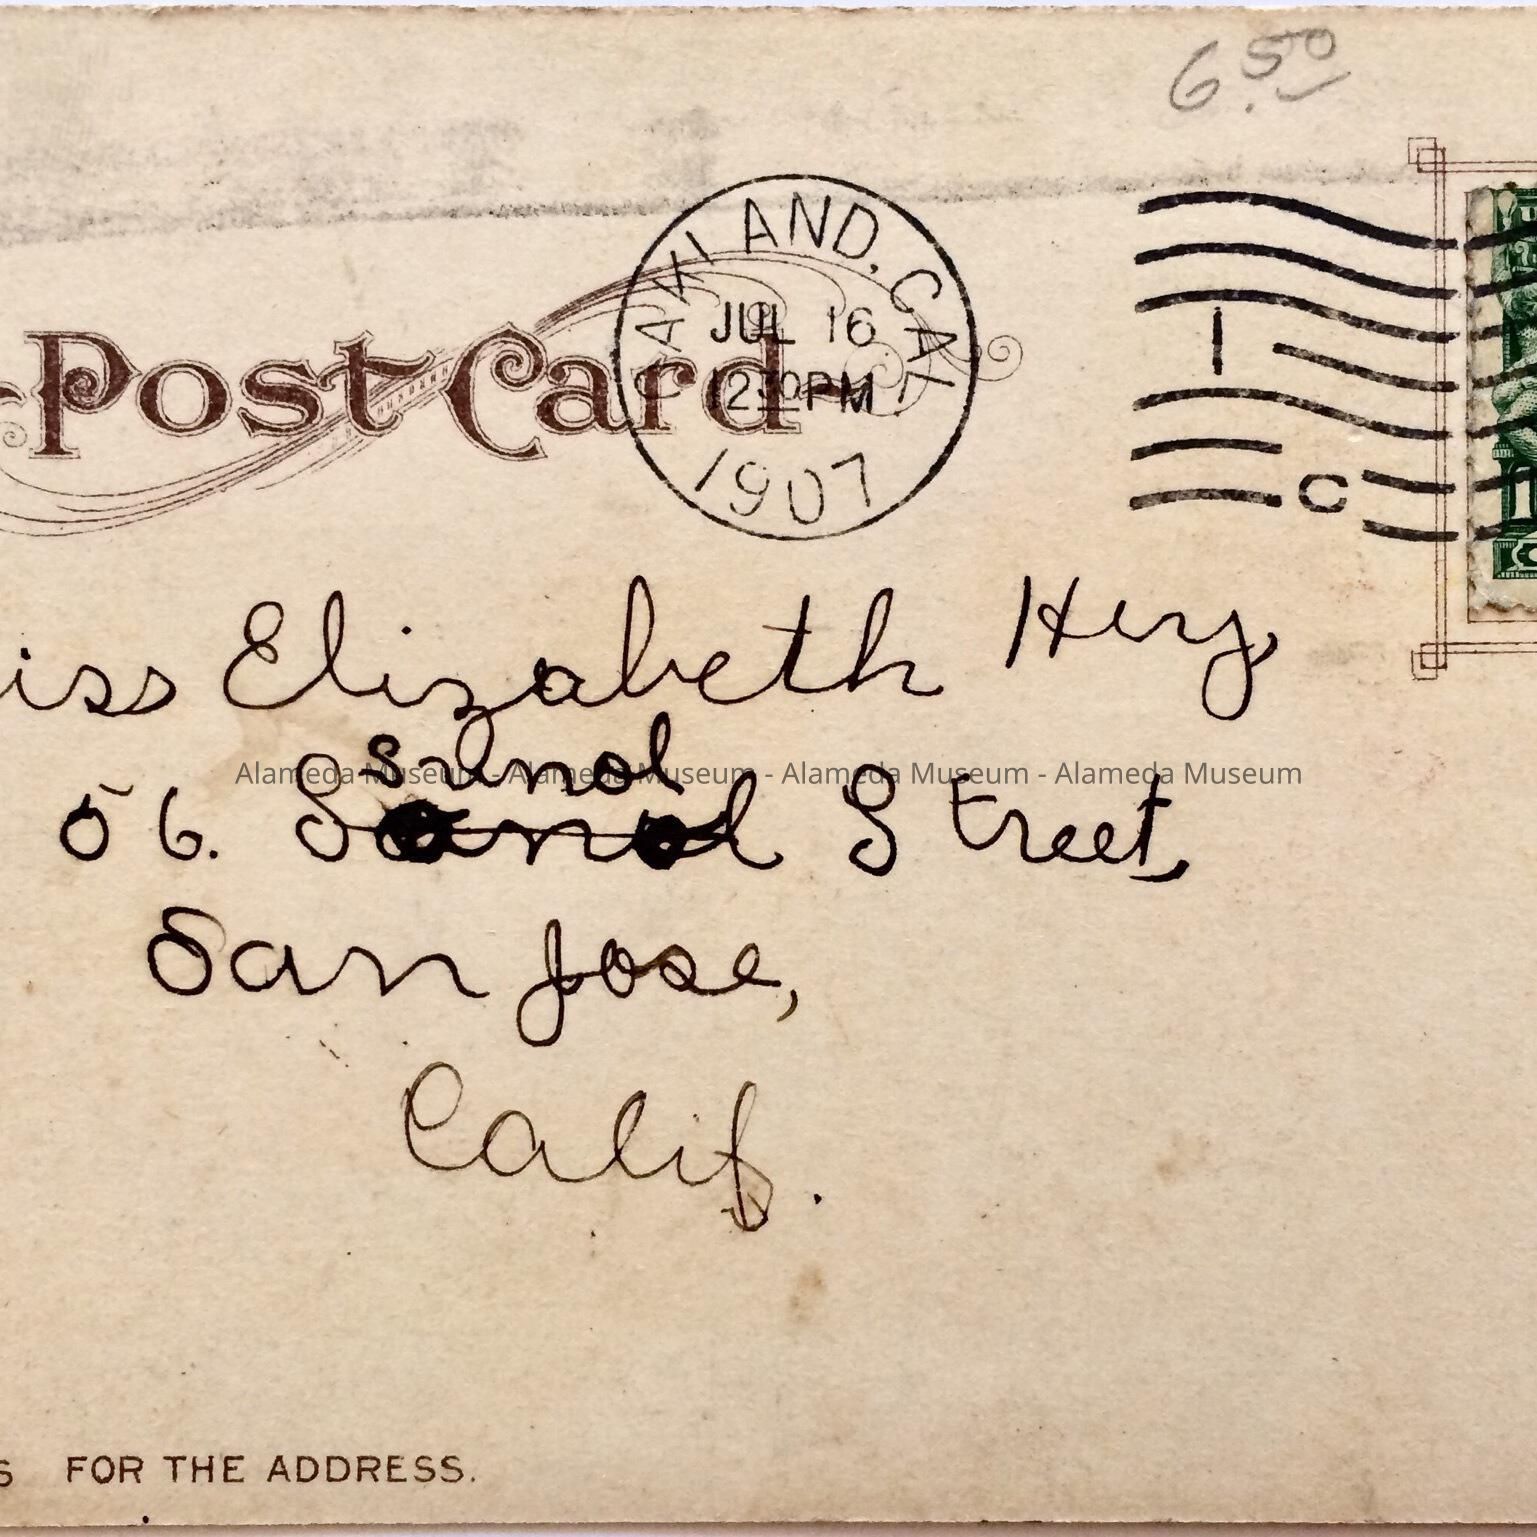 6.50
OAKLAND, CAL
JUL 16
12 30 PM
1907
1
C
Post Card
iss Elizabeth Hery,
Sunol
56. Street,
San Jose,
Calif.
Alameda Museum - Alameda Museum - Alameda Museum - Alameda Museum
S FOR THE ADDRESS.